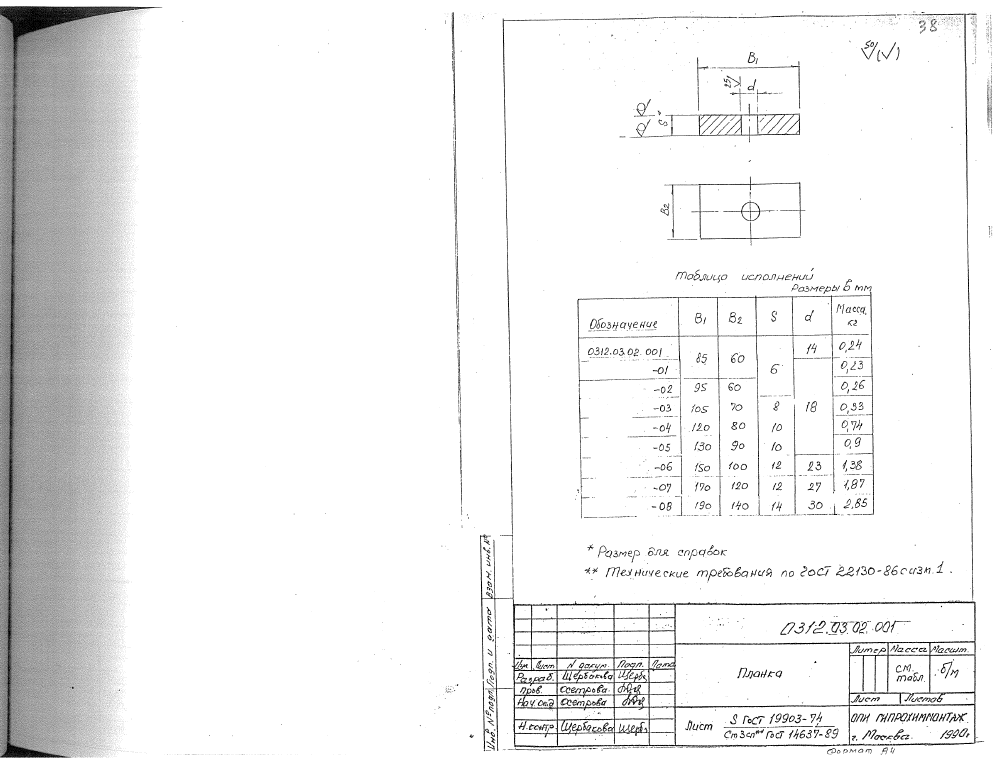 38
50 (√)
B₁
25
d
S*
B₂
Таблица исполнений
Размеры в мм
Обозначение B₁ B₂ S d Масса, кг
0312.03.02.001 85 60 6 14 0,24
-01 0,23
-02 95 60 0,26
-03 105 70 8 18 0,33
-04 120 80 10 0,74
-05 130 90 10 0,9
-06 150 100 12 23 1,38
-07 170 120 12 27 1,87
-08 190 140 14 30 2,85
* Размер для справок
** Технические требования по ГОСТ 22130-86 с изм. 1.
Инв. № подл. Подп. и дата Взам. инв. №
0312.03.02.001
Литер Масса Масшт.
Изм. Лист N докум. Подп. Дата
Разраб. Щербакова Щерб
Пров. Осетрова
Нач. отд Осетрова
Н.контр. Щербакова Щерб
Планка
см. табл. б/м
Лист Листов
Лист S ГОСТ 19903-74
Ст3сп** ГОСТ 14637-89
ОПИ ГИПРОХИММОНТАЖ
г. Москва. 1990г.
Формат А4